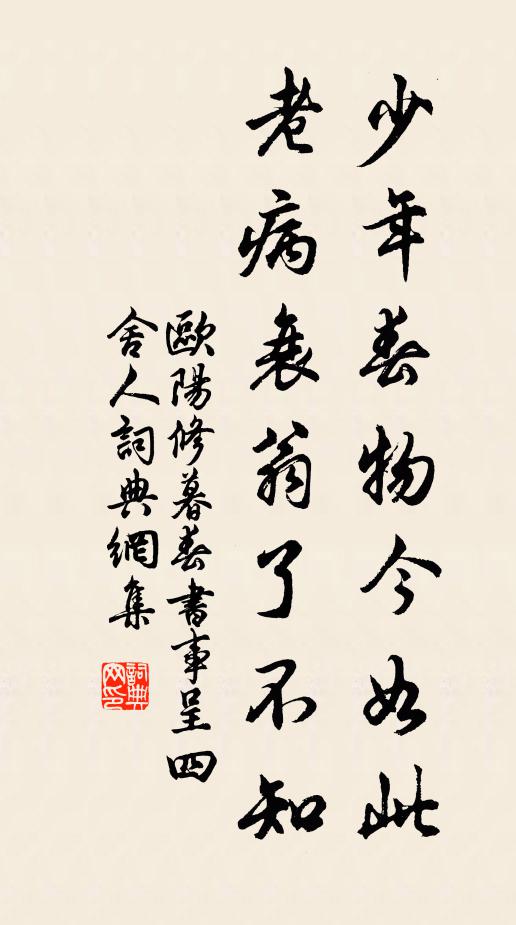 少年春物今如此
老病衰翁了不知
歐陽修暮春書事呈四
舍人詞典網集
詞典
网印